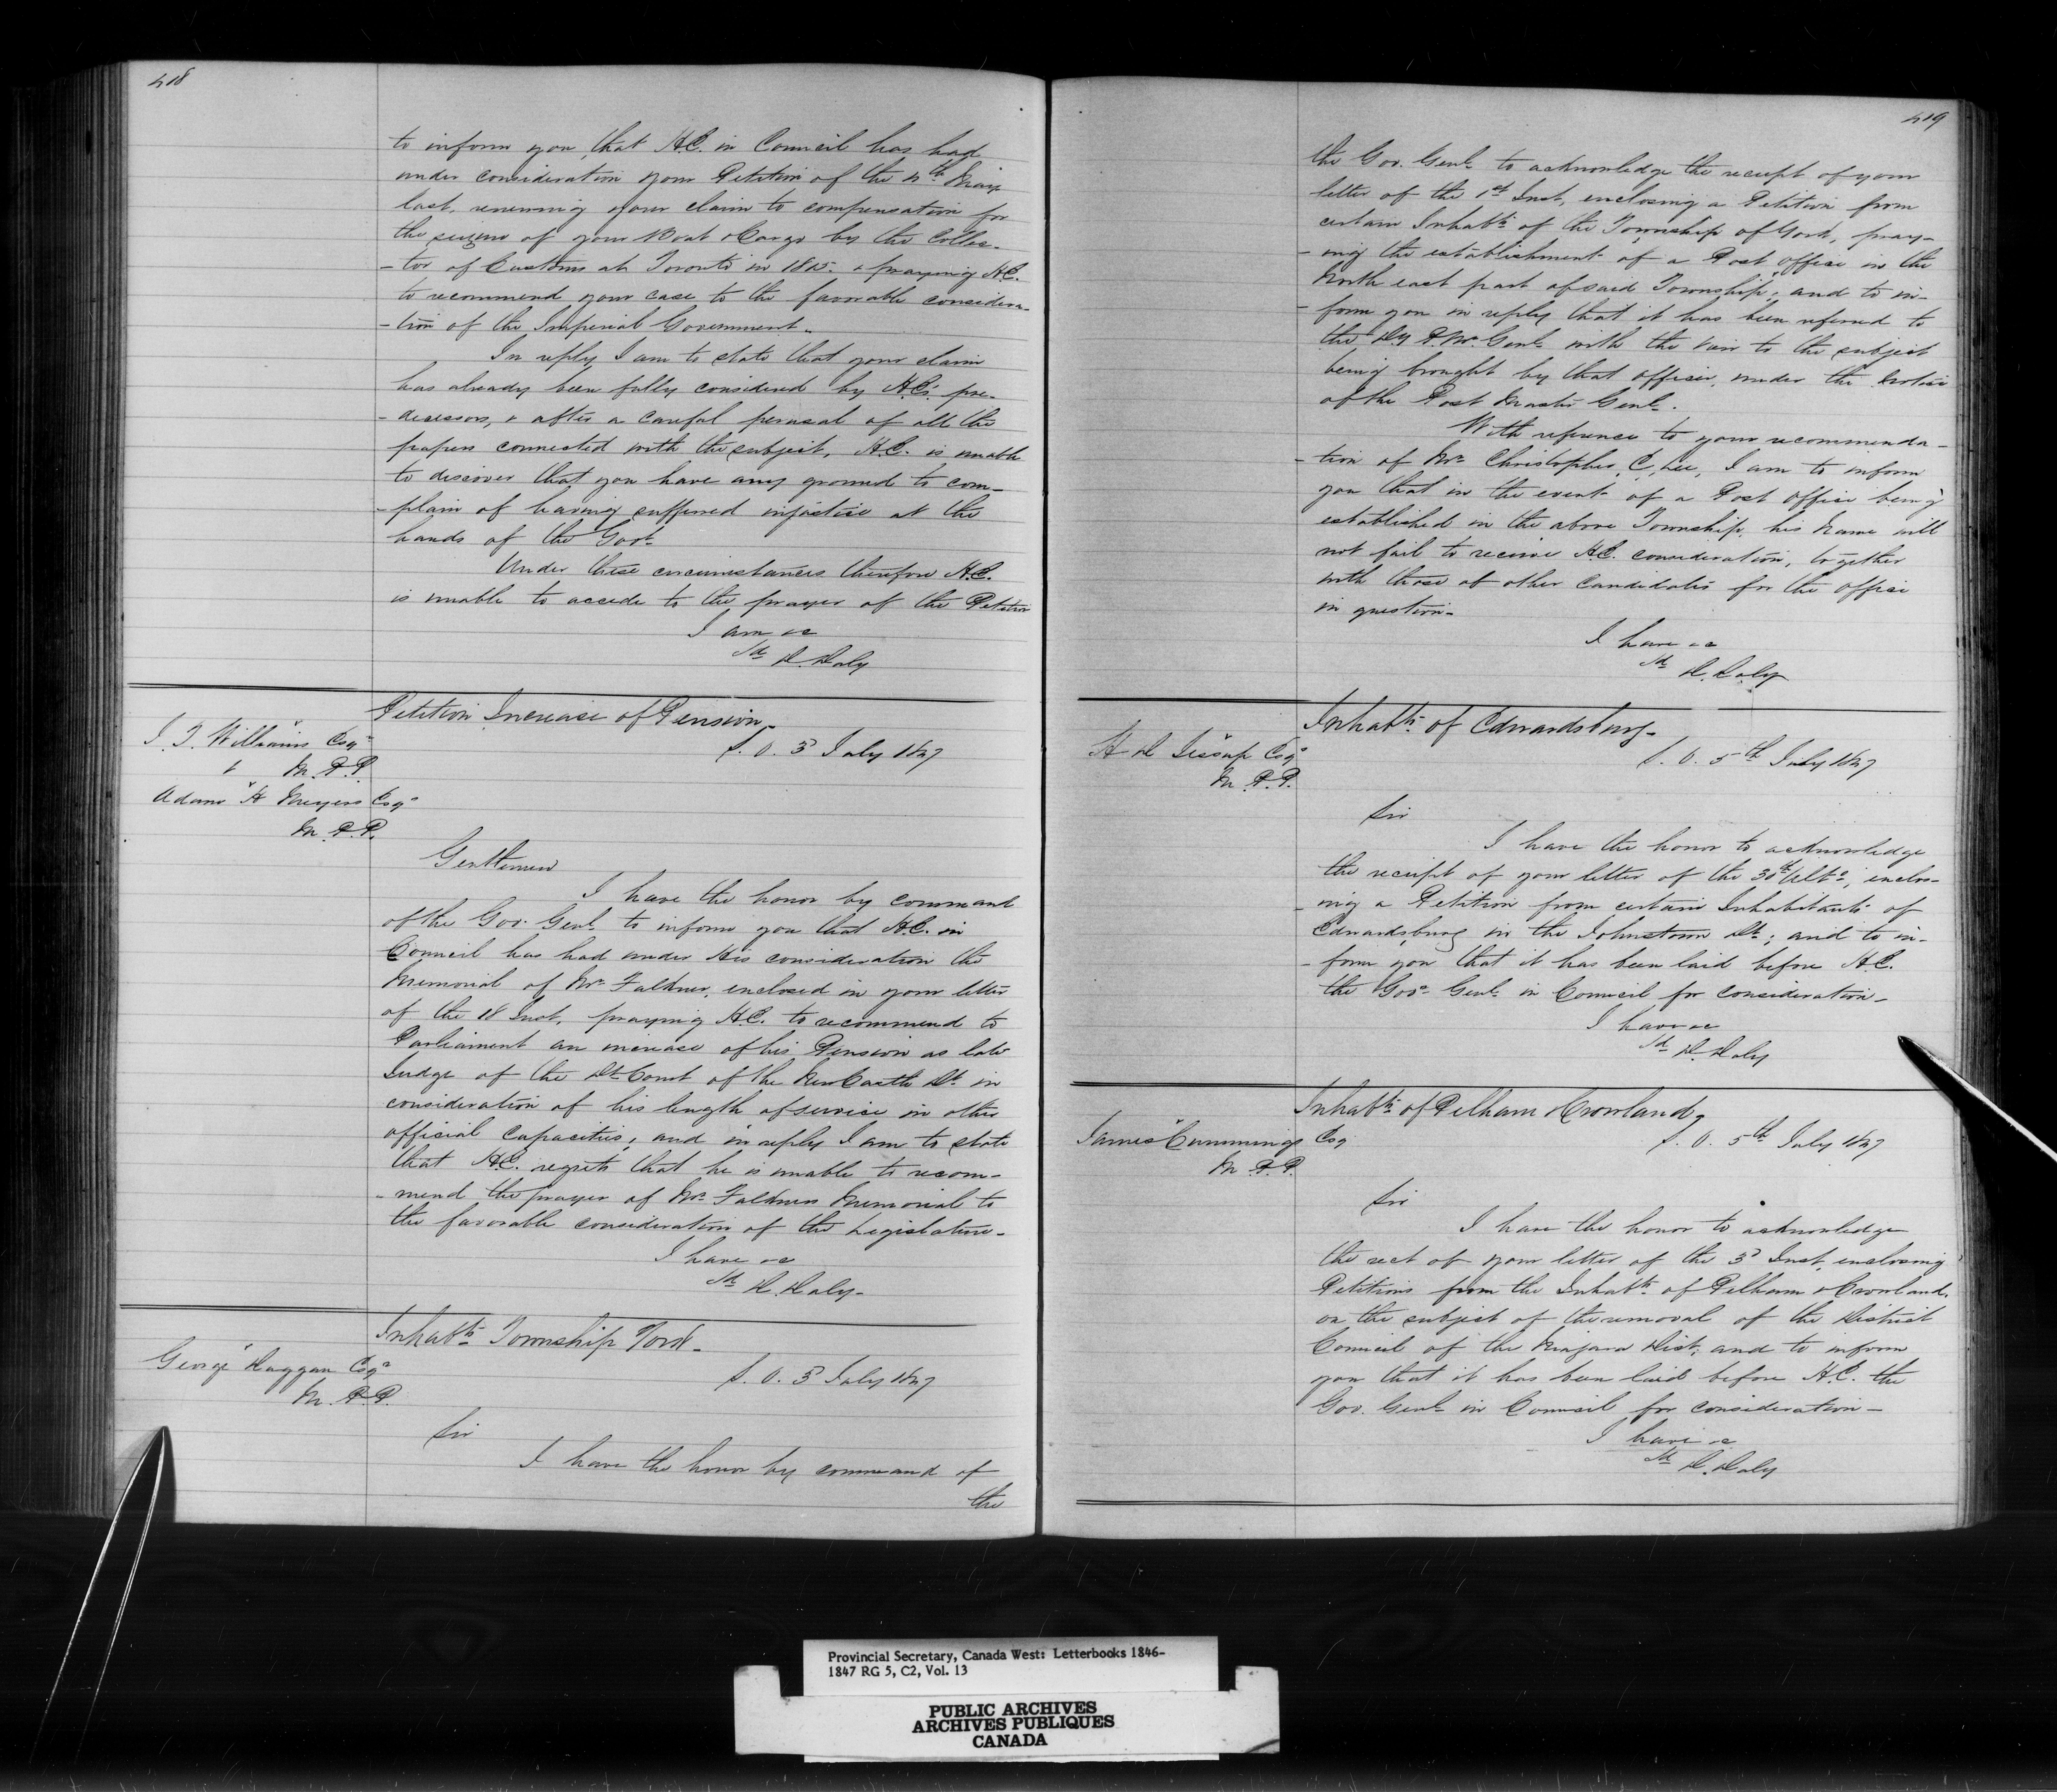 418
to inform you, that H.E. in Council has had
under consideration your Petition of the 4th May
last, renewing your claim to compensation for
the seizure of your Boat & Cargo by the Collec-
-tor of Customs at Toronto in 1845 & praying H.E.
to recommend your case to the favorable considera-
-tion of the Imperial Government.
In reply, I am to state that your claim
has already been fully considered by H.E's. pre-
-decessors, & after a careful perusal of all the
papers connected with the subject, H.E. is unable
to discover that you have any ground to com-
-plain of having suffered injustice at the
hands of the Govt.
Under these circumstances therefore H.E.
is unable to accede to the prayer of the Petition
I am &c
Sd D. Daly
Petition Increase of Pension-
J. T. Williams Esqr
M.P.P.
&
Adam H Meyers Esqr
M.P.P.
S. O. 3d July 1847
Gentlemen
I have the honor by command
of the Gov. Genl. to inform you that H.E. in
Council has had under His consideration the
Memorial of Mr. Falkner, enclosed in your letter
of the 18 Inst, praying H.E. to recommend to
Parliament an increase of his Pension as late
Judge of the Dt Court of the NewCastle Dt. in
consideration of his length of service in other
official capacities, and in reply I am to state
that H.E. regrets that he is unable to recom-
-mend the prayer of Mr. Falkners Memorial to
the favorable consideration of the Legislature-
I have &c
Sd D. Daly-
Inhabts. Township York-
George Duggan Esqr
M.P.P.
S. O. 3d July 1847
Sir
I have the honor by command of
the
419
the Gov. Genl. to acknowledge the receipt of your
letter of the 1st Inst, enclosing a Petition from
certain Inhabts. of the Township of York, pray-
-ing the establishment of a Post Office in the
North east part of said Township; and to in-
-form you in reply that it has been referred to
the Dy P. Mr. Genl. with the view to the subject
being brought by that officer, under the notice
of the Post Master Genl.
With reference to your recommenda-
-tion of Mr. Christopher C. Lee, I am to inform
you that in the event of a Post Office being
established in the above Township, his name will
not fail to receive H.E. consideration, together
with those of other candidates for the office
in question-
I have &c
Sd D. Daly
Inhabts. of Edwardsburg-
H D Jessup Esqr
M.P.P.
S. O. 5th July 1847
Sir
I have the honor to acknowledge
the receipt of your letter of the 30th Ulto, enclos-
-ing a Petition from certain Inhabitants of
Edwardsburg in the Johnstown Dt.; and to in-
-form you that it has been laid before H.E.
the Govr. Genl. in Council for consideration-
I have &c
Sd D. Daly
Inhabts. of Pelham & Crowland-
James Cummings Esq
M.P.P.
S. O. 5th July 1847
Sir
I have the honor to acknowledge
the rect of your letter of the 3d Inst, enclosing
Petitions from the Inhabts. of Pelham & Crowland,
on the subject of the removal of the District
Council of the Niagara Dist; and to inform
you that it has been laid before H.E. the
Gov. Genl. in Council for consideration-
I have &c
Sd D. Daly
Provincial Secretary, Canada West: Letterbooks 1846-
1847 RG 5, C2, Vol. 13
PUBLIC ARCHIVES
ARCHIVES PUBLIQUES
CANADA